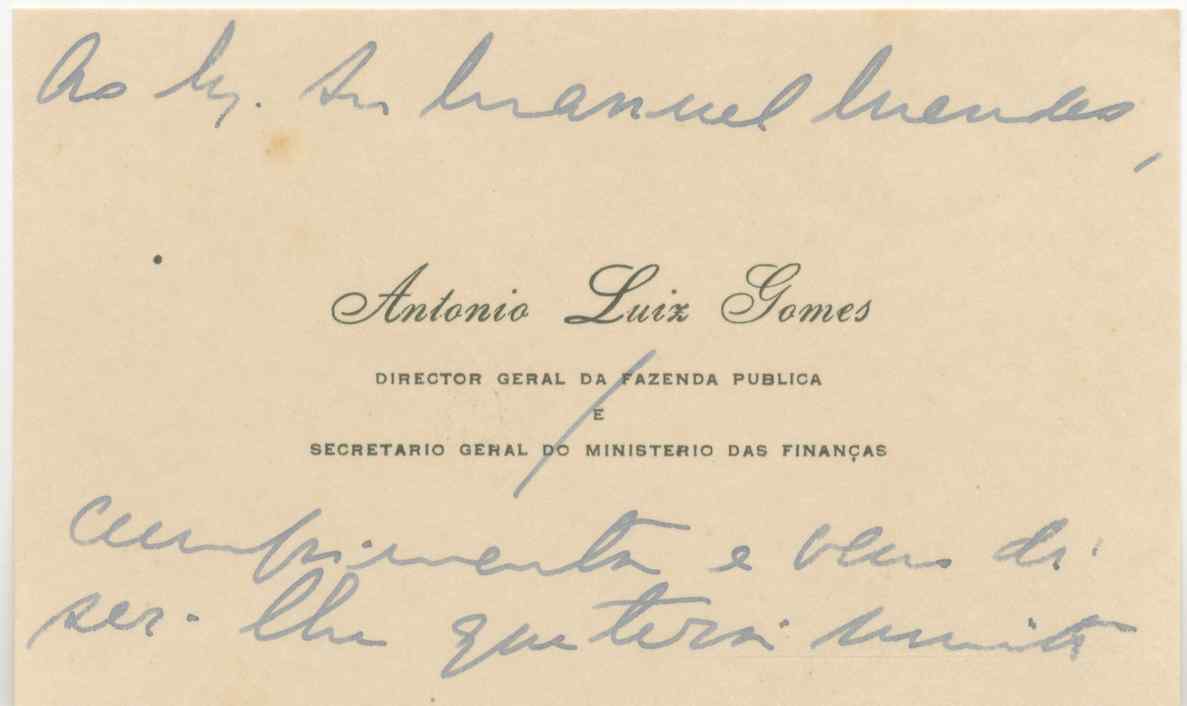 Ao Ex. Sr. Manuel Mendes,
Antonio Luiz Gomes
DIRECTOR GERAL DA FAZENDA PUBLICA
E
SECRETARIO GERAL DO MINISTERIO DAS FINANÇAS
cumprimenta e vem di-
zer-lhe que terá muito